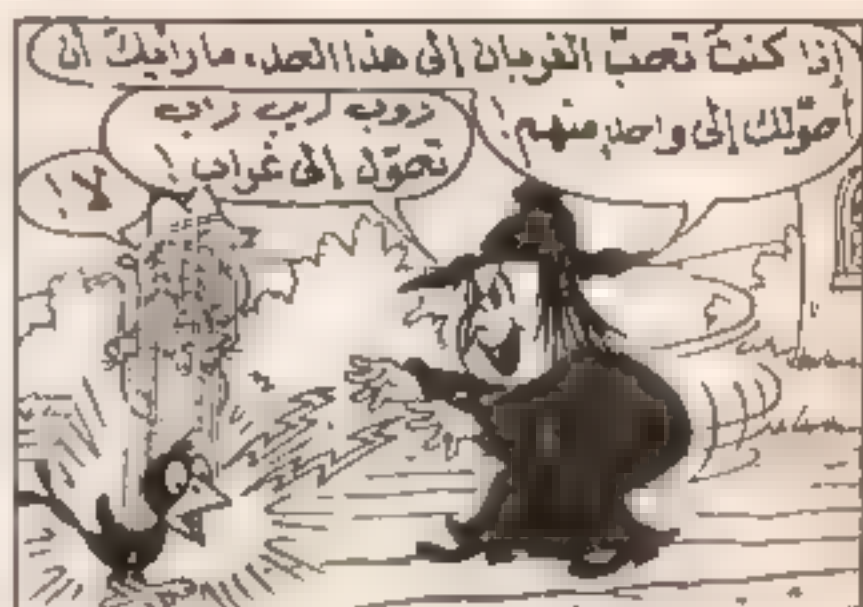 إذا كنتَ تحبّ الغربان إلى هذا الحد، ما رأيك أن
أحوّلك إلى واحدٍ منهم!
روب ريب راب
تحوّل إلى غراب!
لا!